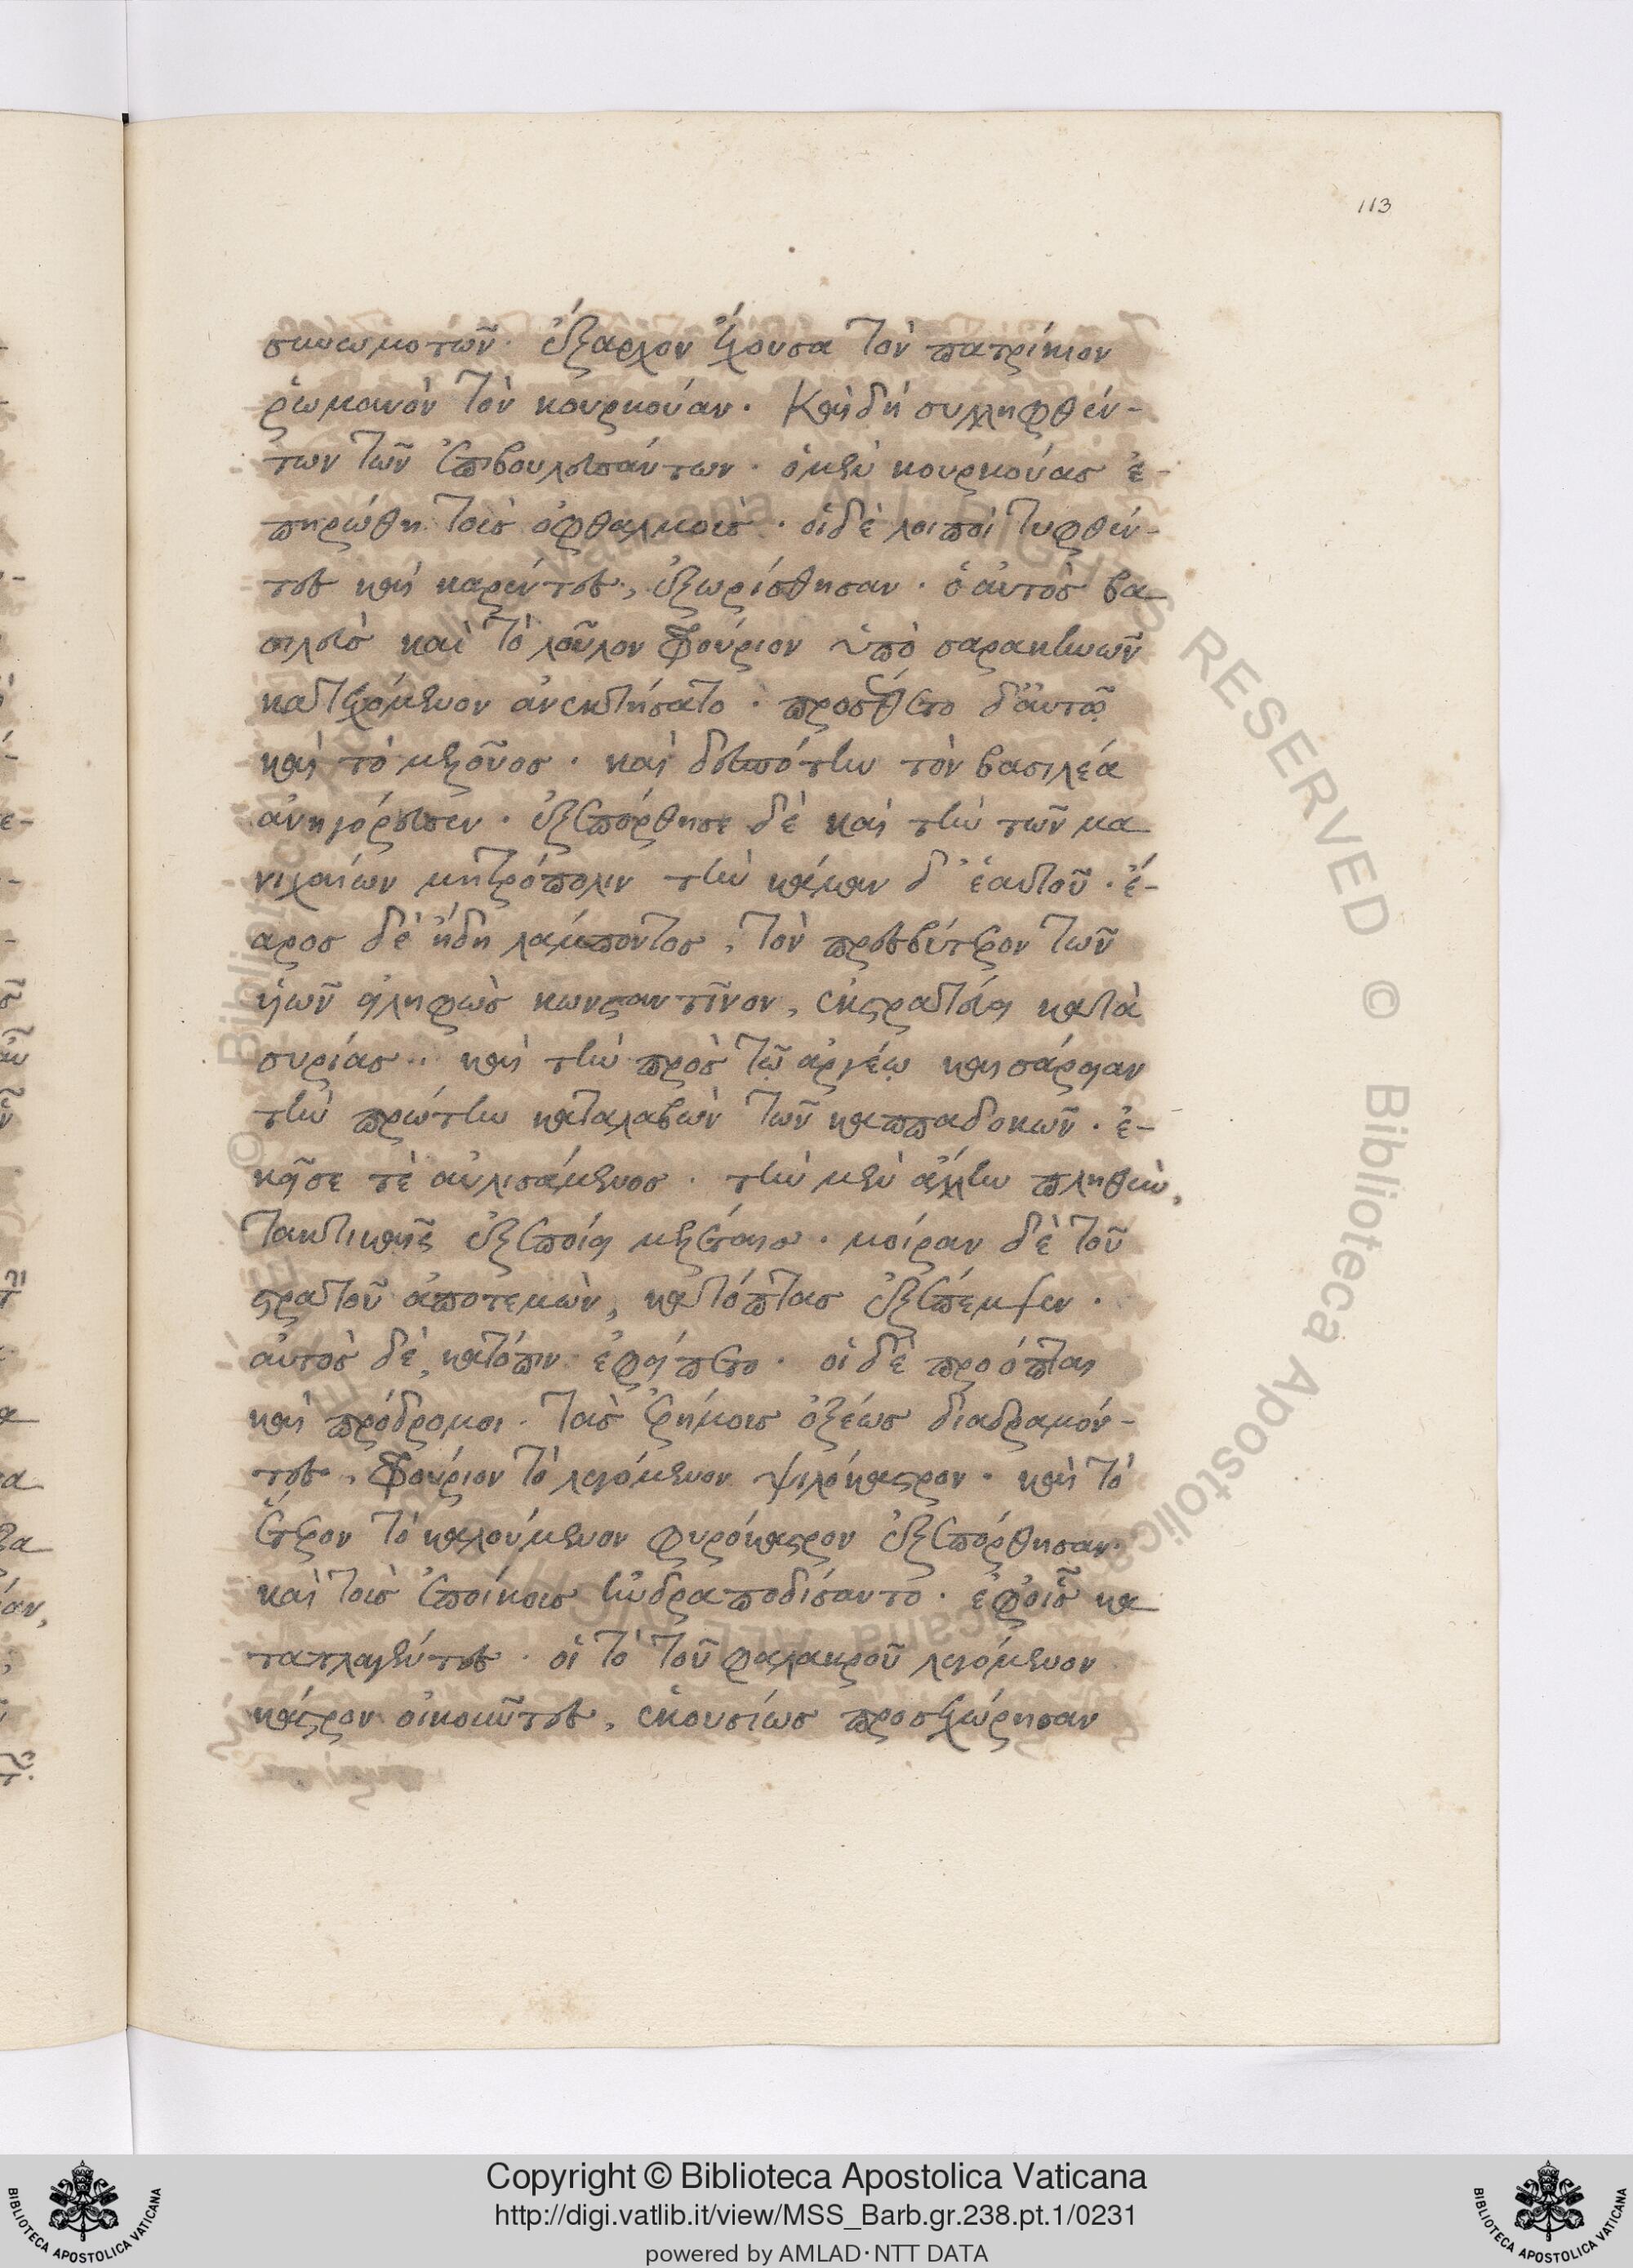 113
συνωμοτῶν· ἔξαρχον ἔχουσα τὸν πατρίκιον
ῥωμανὸν τὸν κουρκούαν. Καὶ δὴ συλληφθέν-
των τῶν ἐπιβουλευσάντων· ὁ μὲν κουρκούας ἐ-
πηρώθη τοὺς ὀφθαλμούς· οἱ δὲ λοιποὶ τυφθέν-
τες καὶ καρέντες, ἐξωρίσθησαν· ὁ αὐτὸς βα-
σιλεὺς καὶ τὸ λοῦλον φρούριον ὑπὸ σαρακηνῶν
κατεχόμενον ἀνεκτήσατο· προσέθετο δ' αὐτῷ
καὶ τὸ μελοῦος· καὶ δεσπότην τὸν βασιλέα
ἀνηγόρευσεν· ἐξεπόρθησε δὲ καὶ τὴν τῶν μα
νιχαίων μητρόπολιν τὴν κάμαν δ' ἑαυτοῦ· ἔ-
αρος δὲ ἤδη λάμποντος, τὸν πρεσβύτερον τῶν
υἱῶν εἰληφὼς κωνσταντῖνον, ἐκστρατεύει κατὰ
συρίας· καὶ τὴν πρὸς τῷ ἀργέῳ καισάρειαν
τὴν πρώτην καταλαβὼν τῶν καππαδοκῶν· ἐ-
κεῖσε τὲ αὐλισάμενος· τὴν μὲν ἄλλην πληθὺν,
τακτικαῖς ἐξεποίει μελέταις· μοίραν δὲ τοῦ
στρατοῦ ἀποτεμὼν, κατόπτας ἐξέπεμψεν·
αὐτὸς δὲ, κατόπιν ἐφείπετο· οἱ δὲ προόπται
καὶ πρόδρομοι· τὰς ἐρήμους ὀξέως διαδραμόν-
τες, φρούριον τὸ λεγόμενον ψιλόκαστρον· καὶ τὸ
ἕτερον τὸ καλούμενον φυρόκαστρον ἐξεπόρθησαν·
καὶ τοὺς ἐποίκους ἠνδραποδίσαντο· ἐφ' οἷς κα
ταπλαγέντες· οἱ τὸ τοῦ φαλακροῦ λεγόμενον
κάστρον οἰκοῦντες, ἑκουσίως προσεχώρησαν
© Biblioteca Apostolica Vaticana ALL RIGHTS RESERVED © Biblioteca Apostolica Vaticana
BIBLIOTECA APOSTOLICA VATICANA
Copyright © Biblioteca Apostolica Vaticana
http://digi.vatlib.it/view/MSS_Barb.gr.238.pt.1/0231
powered by AMLAD·NTT DATA
BIBLIOTECA APOSTOLICA VATICANA